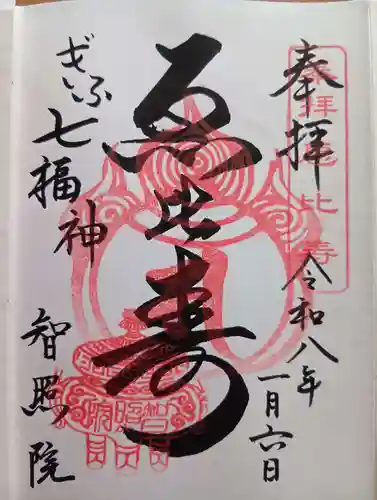 奉拝
令和八年
一月六日
ゑ比寿
ぎふ七福神
智照院